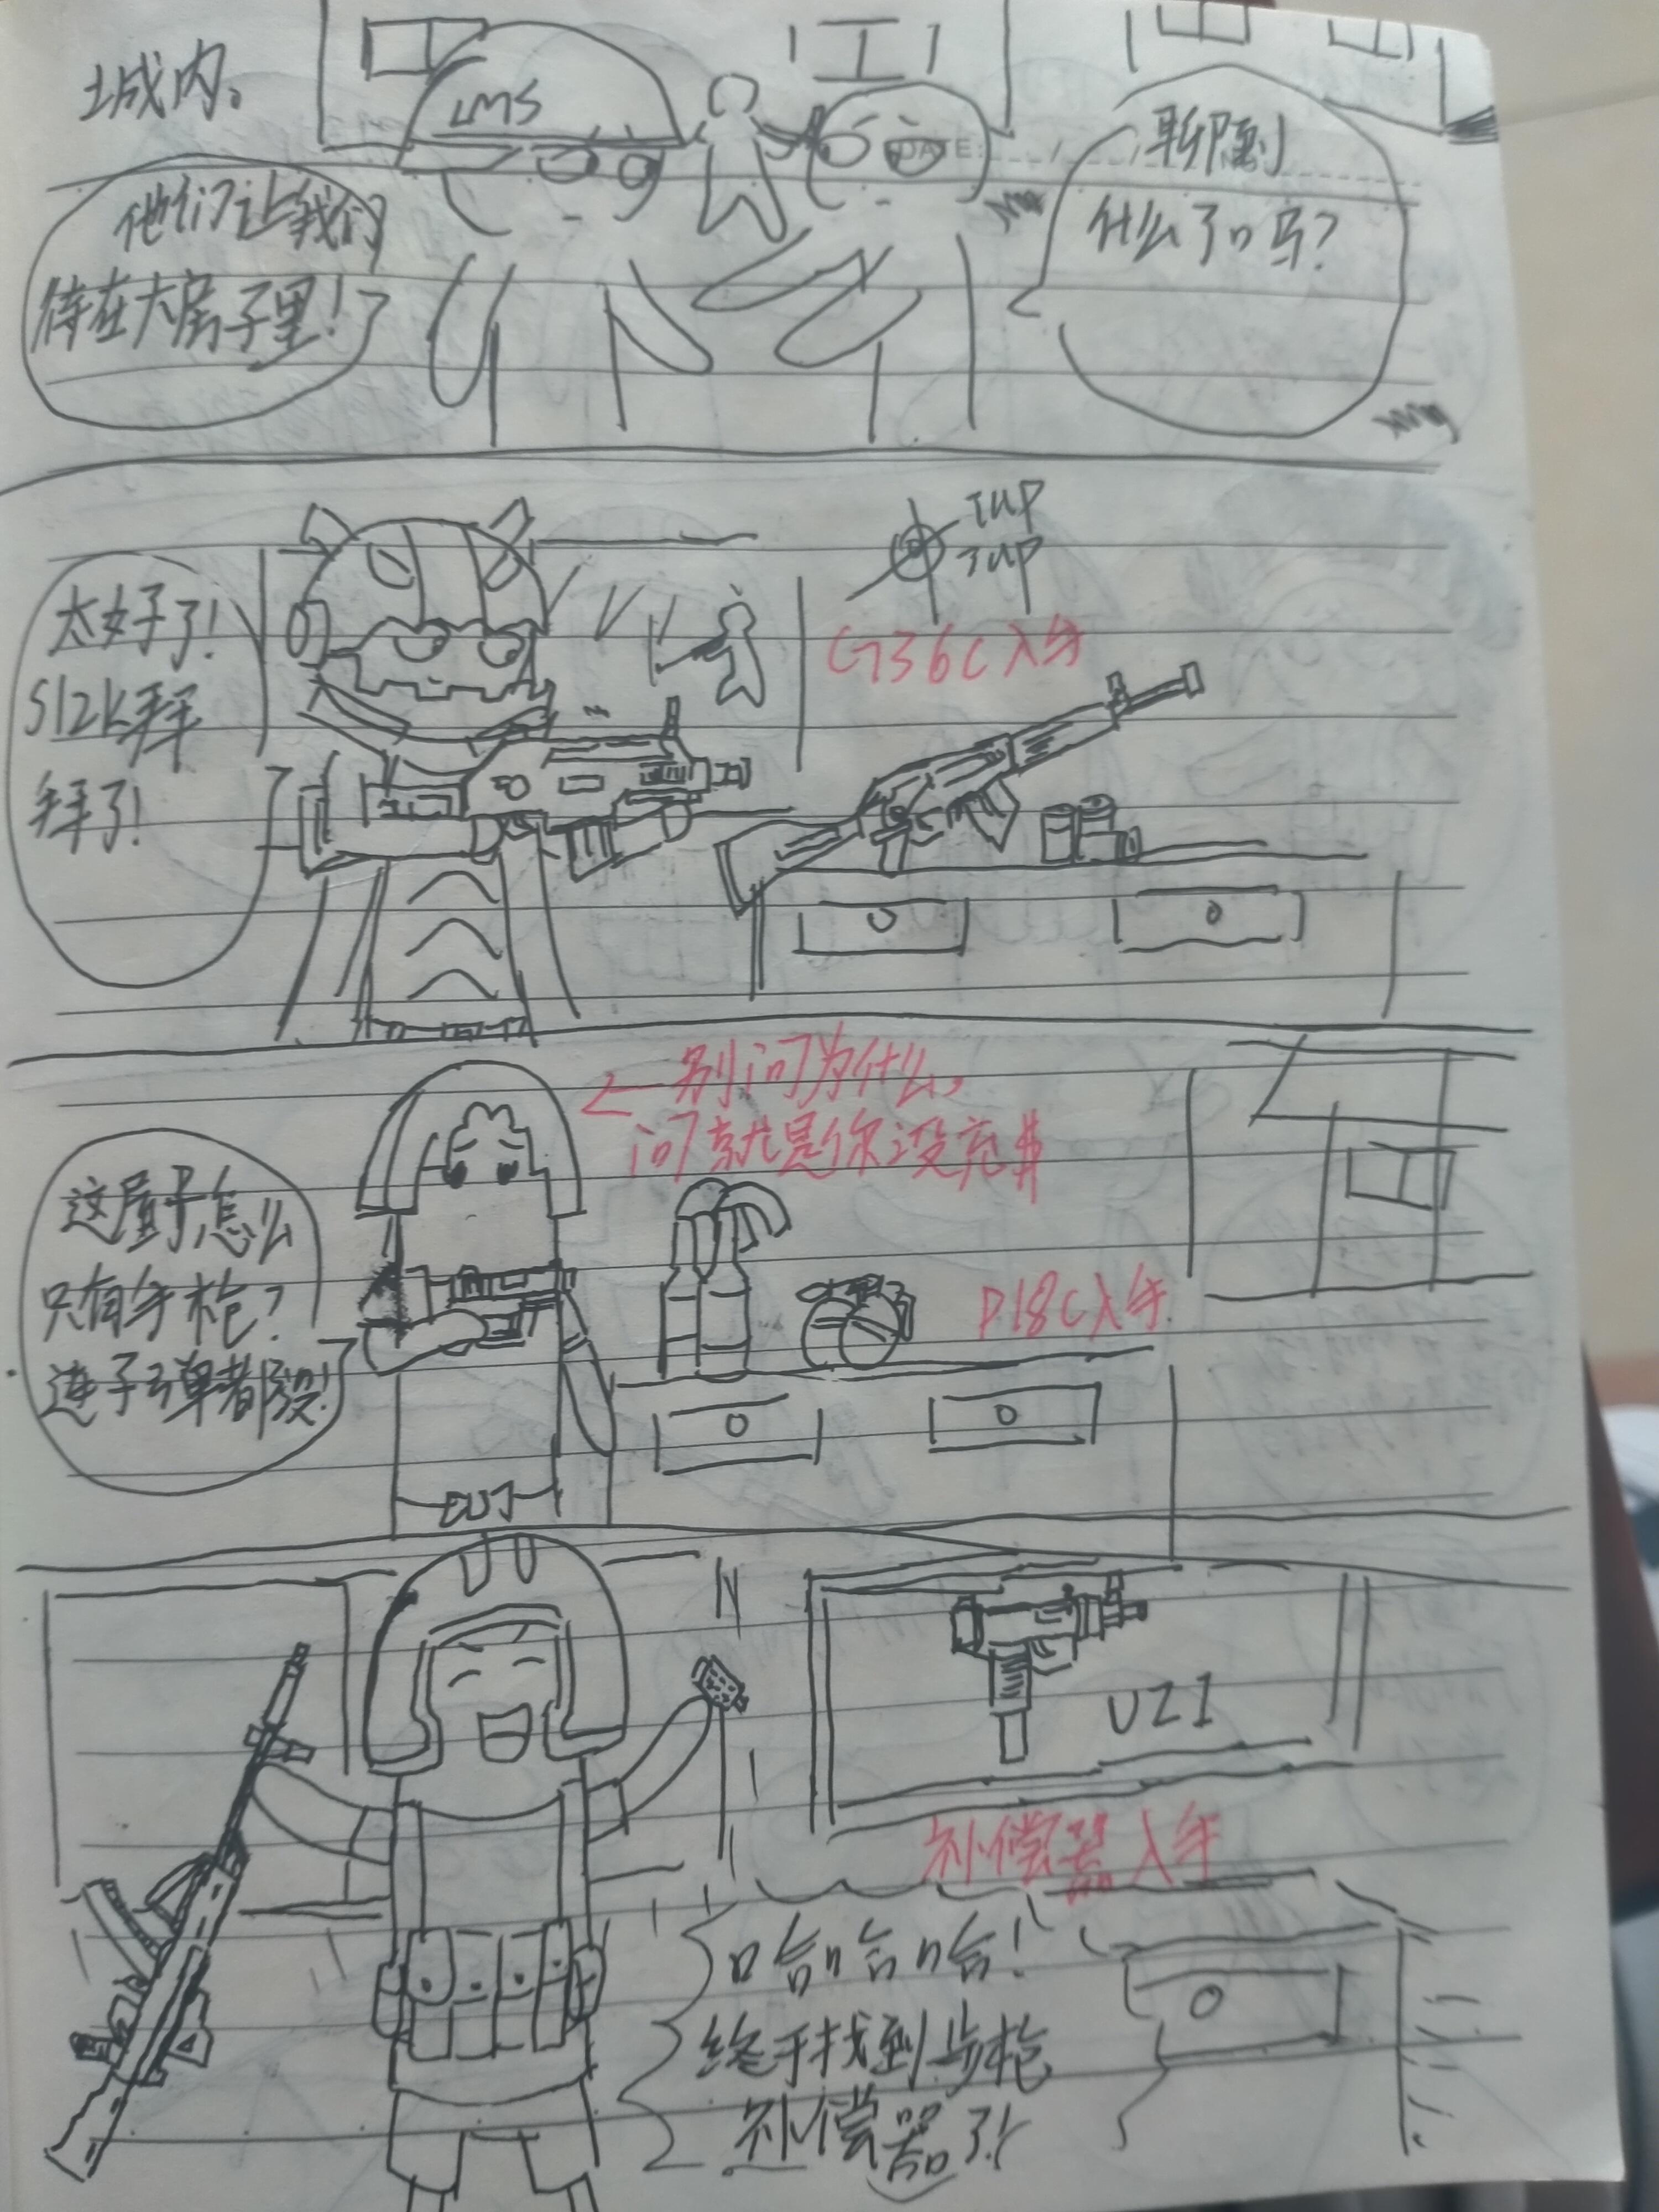 土城内。
LMS
DATE:
聊到
什么了吗?
他们让我们
待在大房子里!
1UP
3UP
太好了!
S12K拜
拜了!
G36C入手
←别问为什么,
问就是你没充费
这屋子怎么
只有手枪?
连子弹都没!
P18C入手
UZI
补偿器入手
哈哈哈!
终于找到步枪
补偿器了!